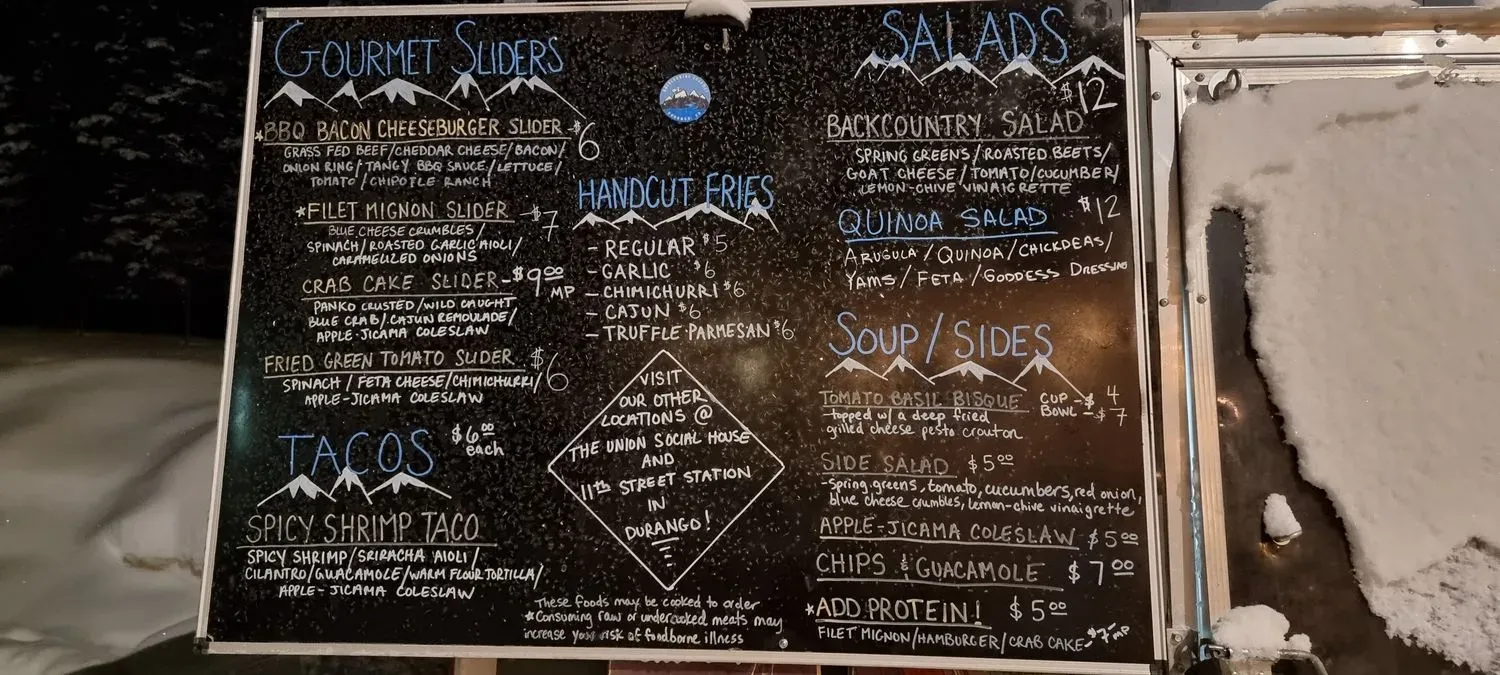 GOURMET SLIDERS
*BBQ BACON CHEESEBURGER SLIDER -$6
GRASS FED BEEF/CHEDDAR CHEESE/BACON/
ONION RING/TANGY BBQ SAUCE/LETTUCE/
TOMATO/CHIPOTLE RANCH
*FILET MIGNON SLIDER -$7
BLUE CHEESE CRUMBLES/
SPINACH/ROASTED GARLIC AIOLI/
CARAMELIZED ONIONS
CRAB CAKE SLIDER-$9.00 MP
PANKO CRUSTED/WILD CAUGHT
BLUE CRAB/CAJUN REMOULADE/
APPLE-JICAMA COLESLAW
FRIED GREEN TOMATO SLIDER $6
SPINACH/FETA CHEESE/CHIMICHURRI/
APPLE-JICAMA COLESLAW
TACOS $6.00 each
SPICY SHRIMP TACO
SPICY SHRIMP/SRIRACHA AIOLI/
CILANTRO/GUACAMOLE/WARM FLOUR TORTILLA/
APPLE-JICAMA COLESLAW
HANDCUT FRIES
- REGULAR $5
- GARLIC $6
- CHIMICHURRI $6
- CAJUN $6
- TRUFFLE-PARMESAN $6
VISIT
OUR OTHER
LOCATIONS @
THE UNION SOCIAL HOUSE
AND
11th STREET STATION
IN
DURANGO!
These foods may be cooked to order
*Consuming raw or undercooked meats may
increase your risk of foodborne illness
SALADS
$12
BACKCOUNTRY SALAD
SPRING GREENS/ROASTED BEETS/
GOAT CHEESE/TOMATO/CUCUMBER/
LEMON-CHIVE VINAIGRETTE
QUINOA SALAD $12
ARUGULA/QUINOA/CHICKDEAS/
YAMS/FETA/GODDESS DRESSING
SOUP/SIDES
TOMATO BASIL BISQUE CUP -$4
BOWL -$7
topped w/ a deep fried
grilled cheese pesto crouton
SIDE SALAD $5.00
-spring greens, tomato, cucumbers, red onion,
blue cheese crumbles, lemon-chive vinaigrette
APPLE-JICAMA COLESLAW $5.00
CHIPS & GUACAMOLE $7.00
*ADD PROTEIN! $5.00
FILET MIGNON/HAMBURGER/CRAB CAKE-$7 MP